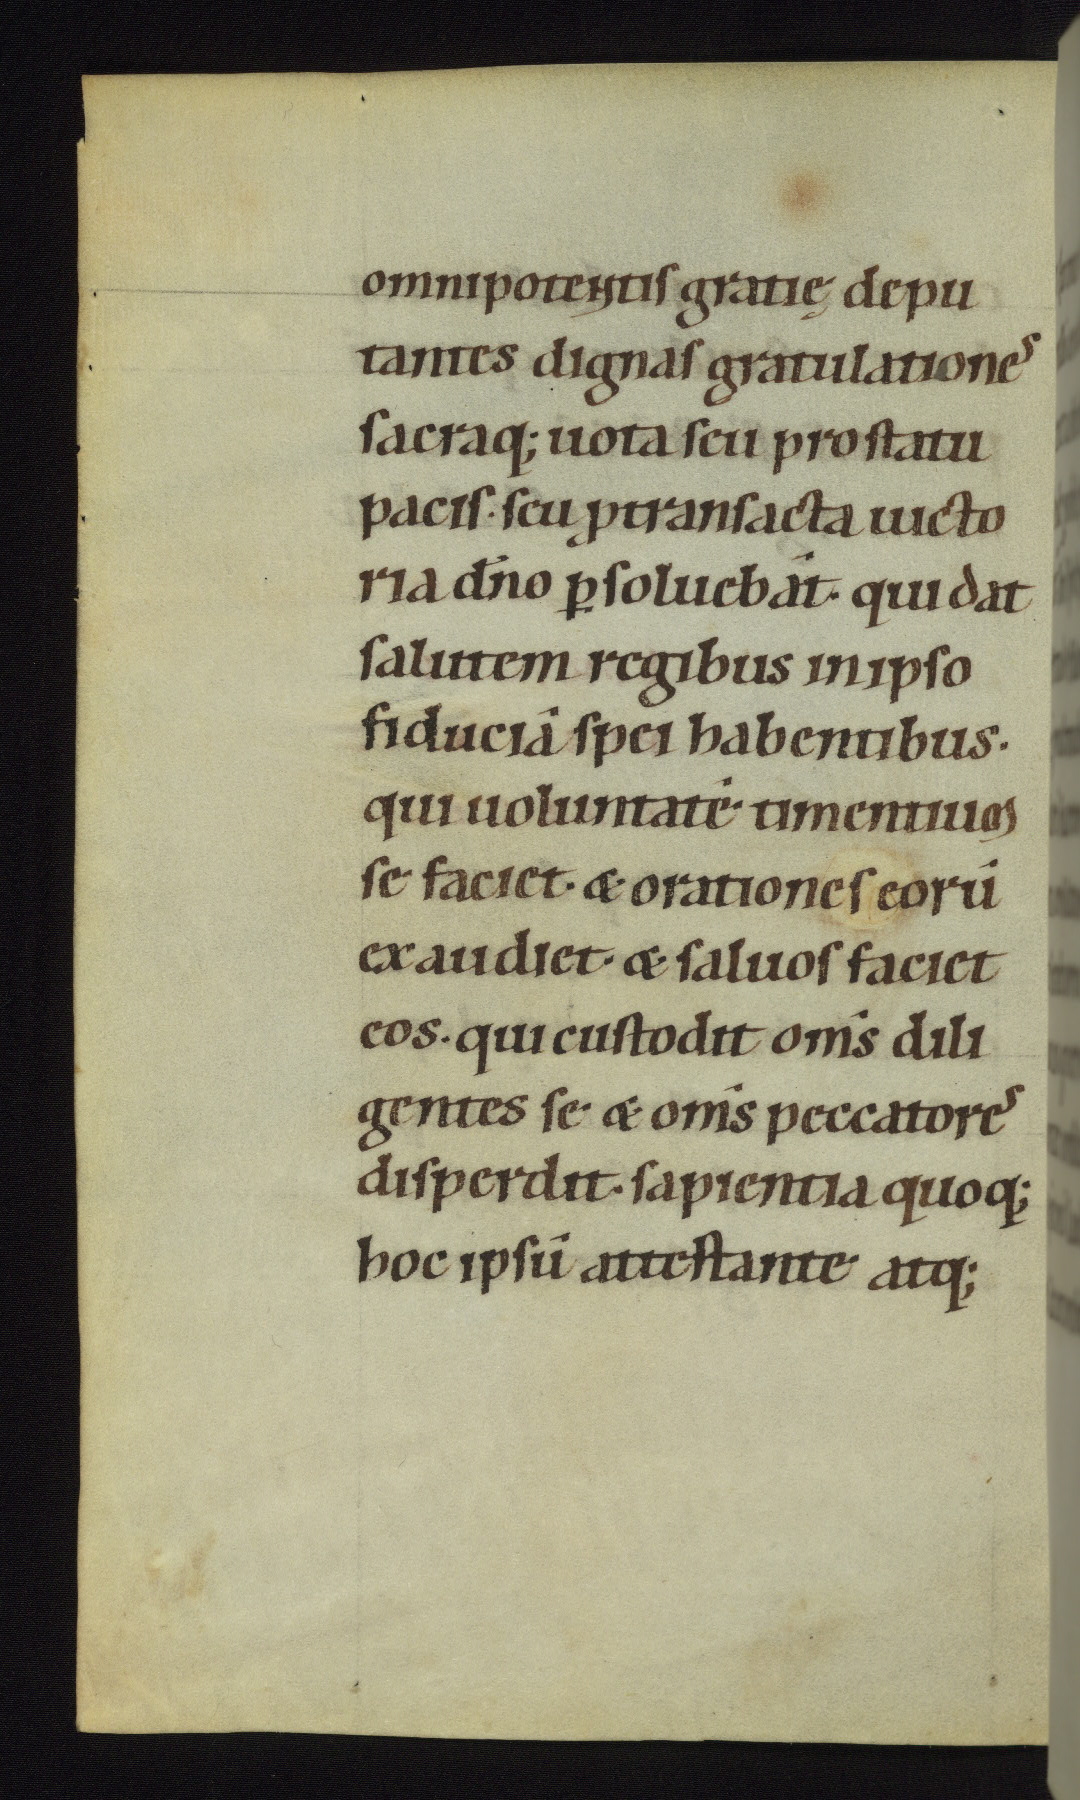 omnipotentis gratię depu
tantes dignas gratulationes
sacraq; uota seu pro statu
pacis· seu ꝓ transacta uicto
ria dn̄o ꝑsoluebāt· qui dat
salutem regibus in ipso
fiduciā spei habentibus·
qui uoluntatē timentium
se faciet· & orationes eorū
exaudiet· & saluos faciet
eos· qui custodit om̄s dili
gentes se & om̄s peccatores
disperdit· sapientia quoq;
hoc ipsū attestante atq;